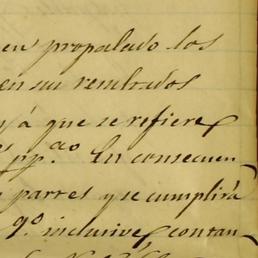 en propalado los
en sus resultados
y á que se refiere
pp.ᵃᵒ En consecuen
parres y se cumplirá
9.º inclusive, contan-